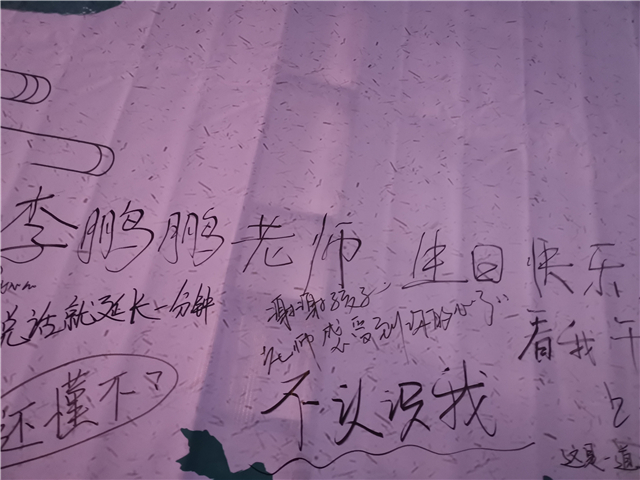 李鹏鹏老师 生日快乐
说话就延长一分钟
谢谢孩子,
老师感受到你的心了"
看我午
还懂不?
不认识我
这是一道